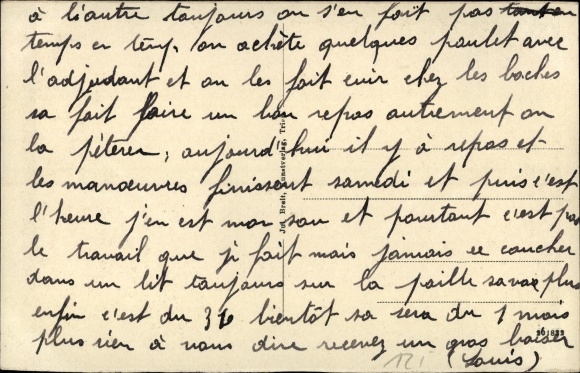 à l'autre toujours on s'en fait pas tant en
temps en temp. on achète quelques poulet avec
l'adjudant et on les fait cuir chez les boches
sa fait faire un bon repas autrement on
la péterer, aujourd'hui il y à repos et
les manœuvres finissent samedi et puis c'est
l'heure j'en est mon sou et pourtant c'est pas
le travail que je fait mais jamais ce coucher
dans un lit toujours sur la paille sa va plus
enfin c'est du bientôt sa sera du 1 mois
plus rien à vous dire recevez un gros baiser
(Louis)
Jos. Breit, Kunstverlag, Trier